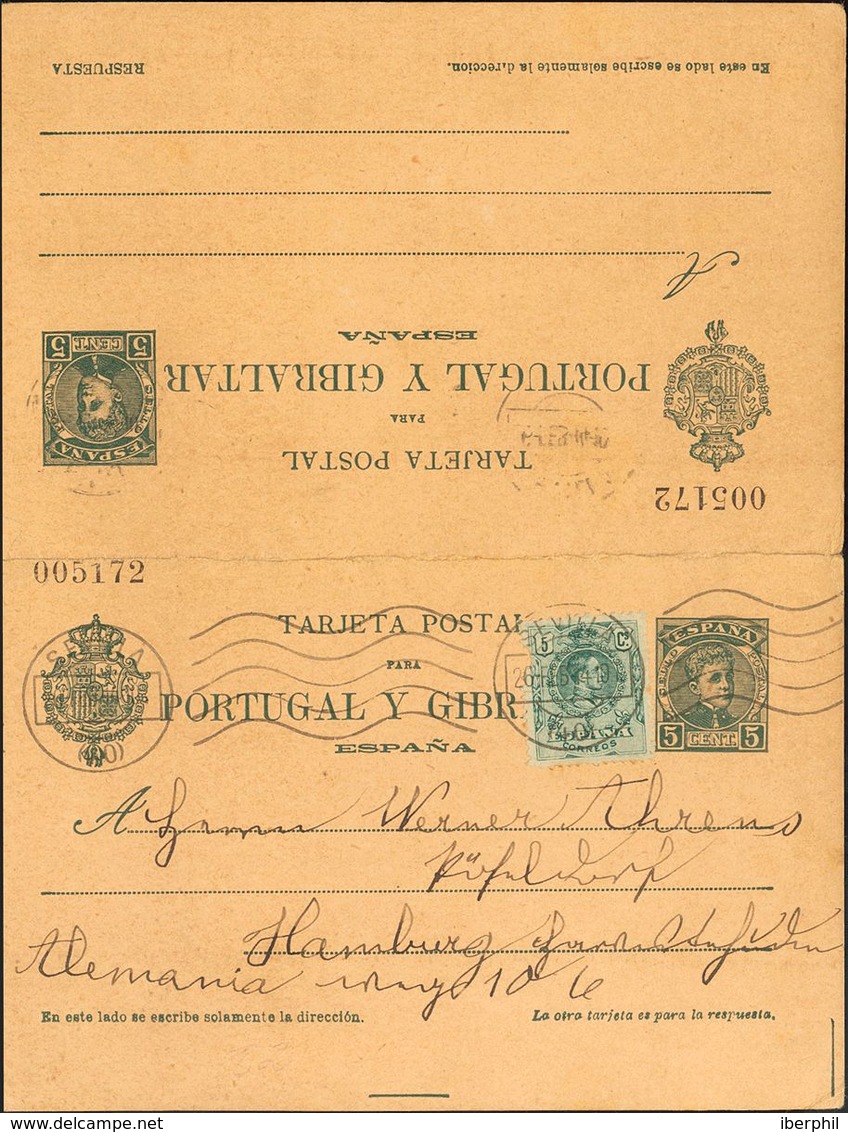 RESPUESTA
En este lado se escribe solamente la direccion.
A
ESPAÑA
PORTUGAL Y GIBRALTAR
PARA
TARJETA POSTAL
5 CENT. 5
SELLO POSTAL
ESPAÑA
005172
005172
TARJETA POSTAL
PARA
PORTUGAL Y GIBR
ESPAÑA
SEVILLA
5 Cs
CORREOS
ESPAÑA
SELLO POSTAL
5 CENT. 5
A Herrn Werner Ahrens
Hamburg
Alemania weg 10 6
En este lado se escribe solamente la dirección.
La otra tarjeta es para la respuesta.
delcampe.net
iberphil